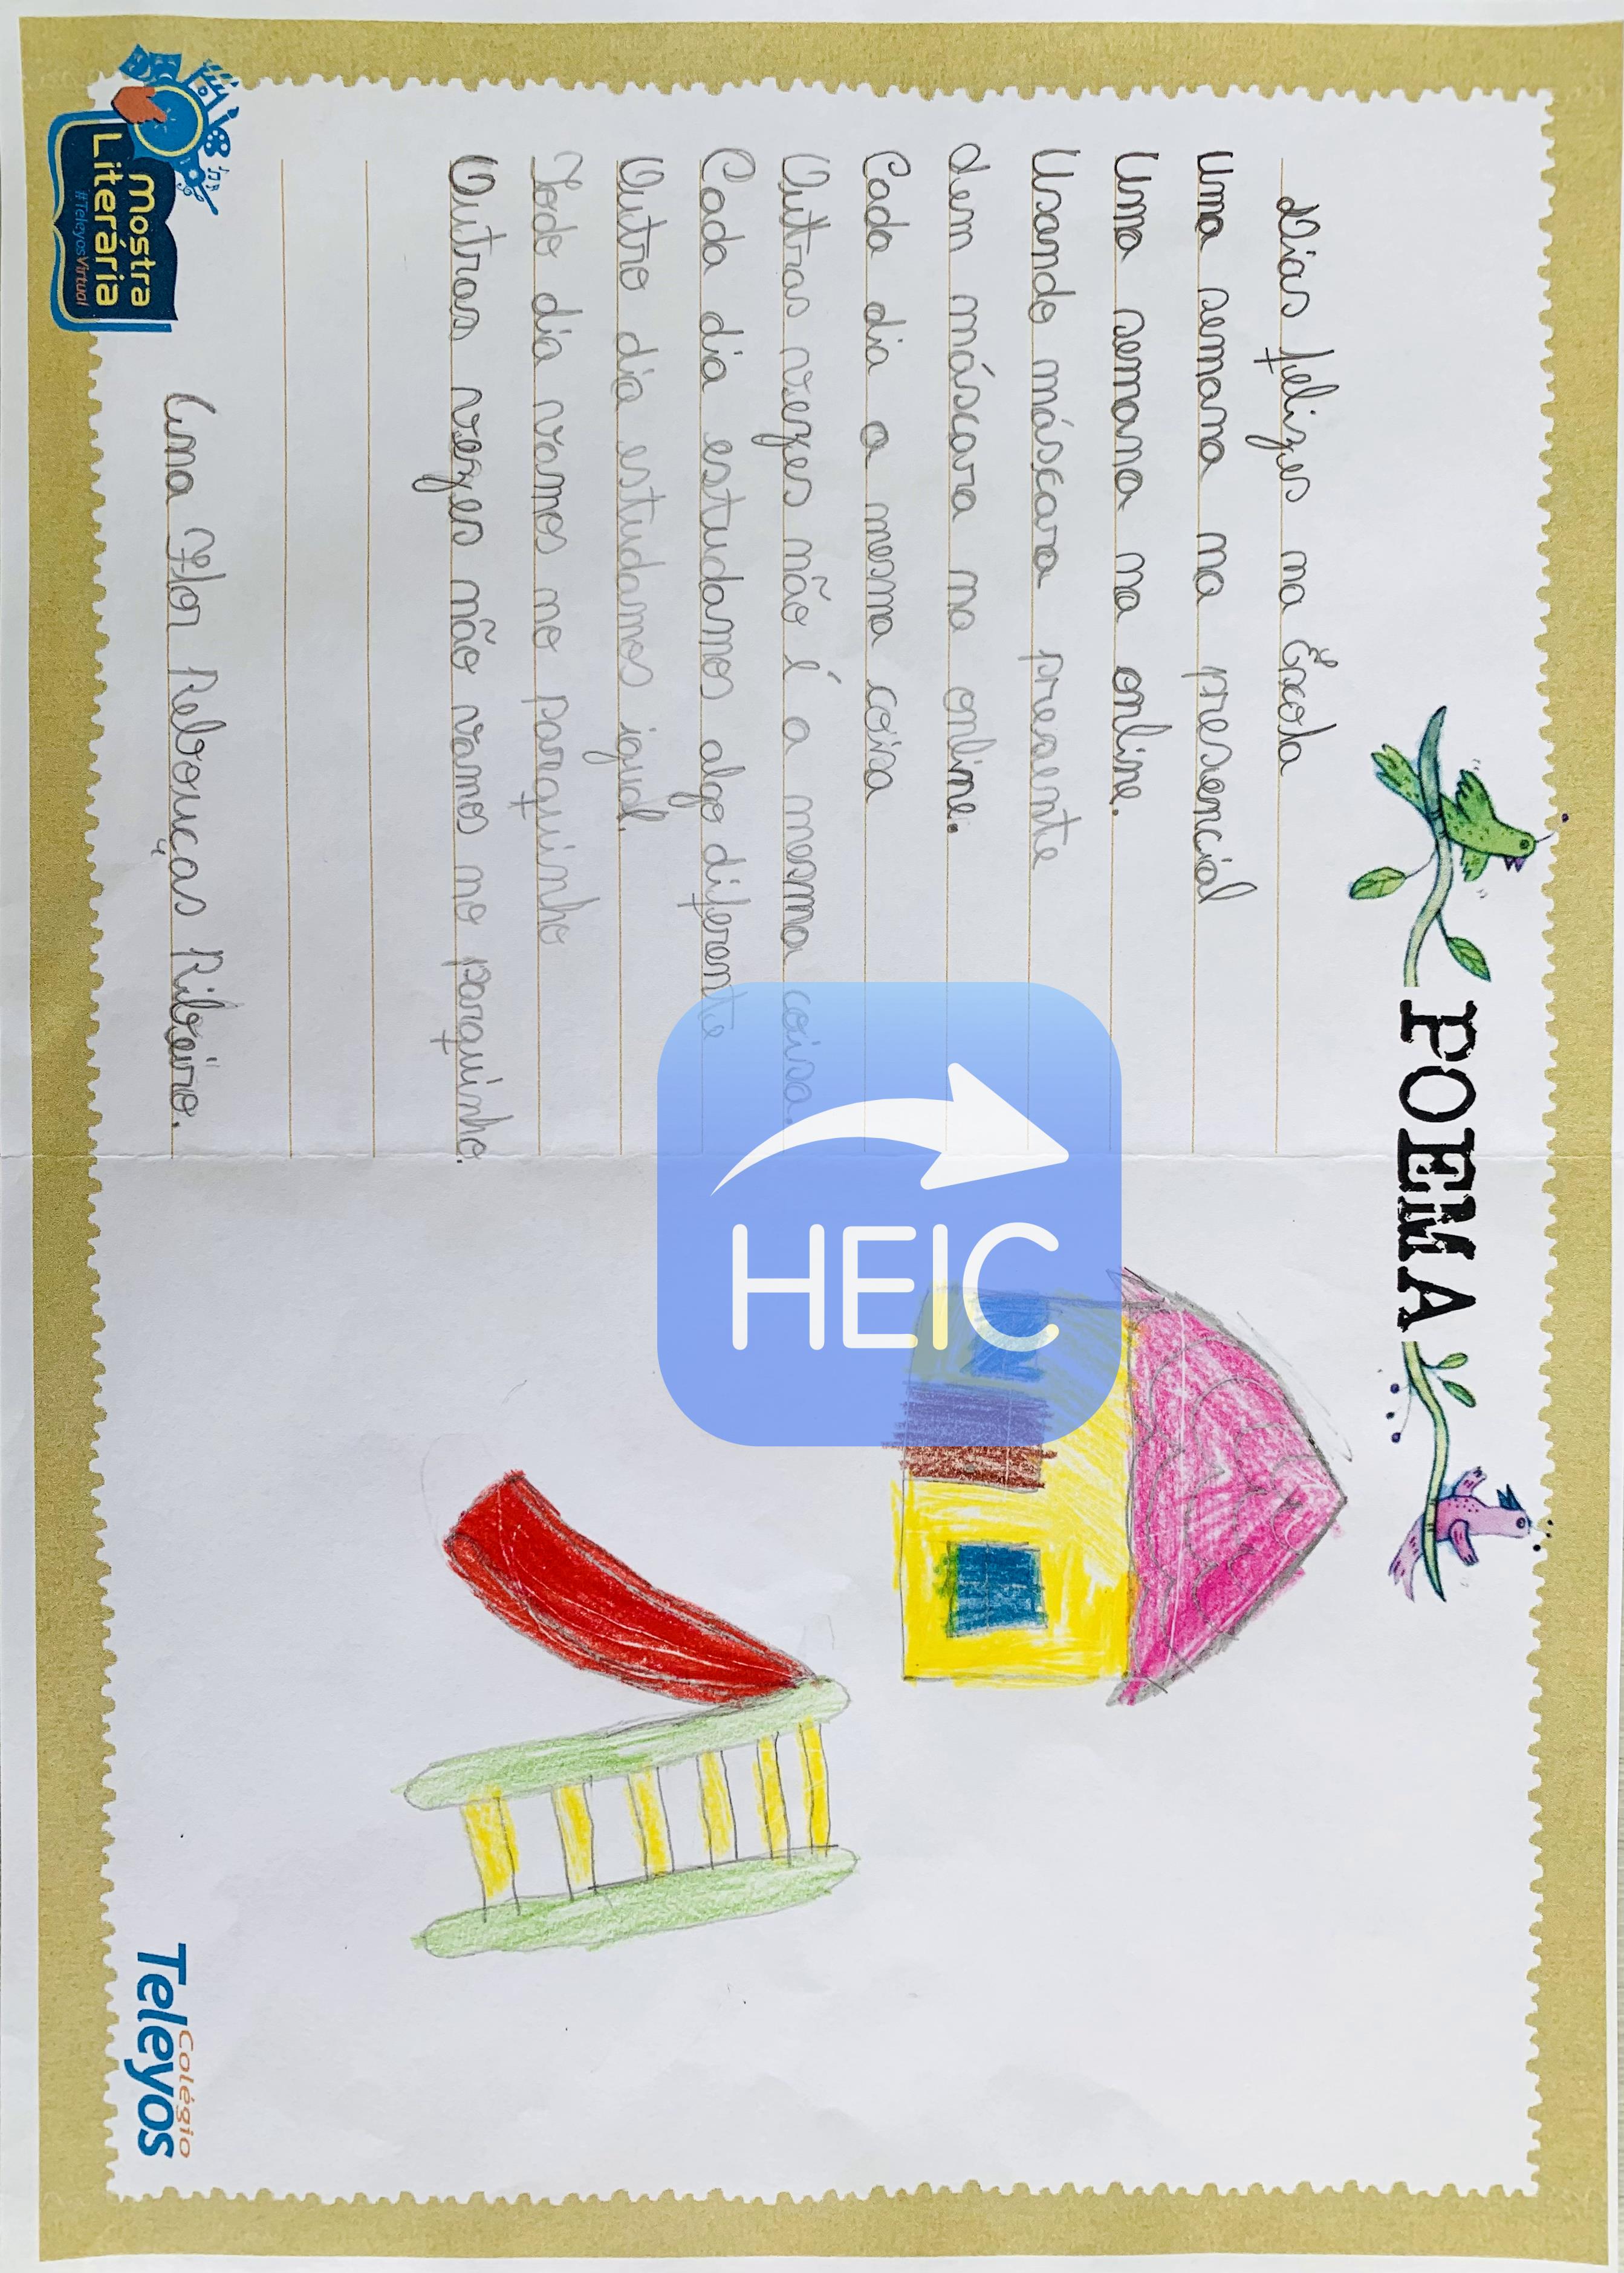 POEMA
Dias felizes na Escola
Uma semana na presencial
Uma semana na online.
Usando máscara presente
Sem máscara na online.
Cada dia a mesma coisa
Outras vezes não é a mesma coisa.
Cada dia estudamos algo diferente
Outro dia estudamos igual.
Todo dia vamos no parquinho
Outras vezes não vamos no parquinho.
Ana Flor Rebouças Ribeiro.
Mostra
Literária
#TeleyosVirtual
Colégio
Teleyos
HEIC